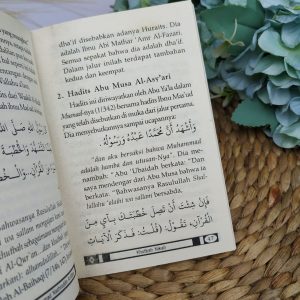 dha'if disebabkan adanya Huraits. Dia
adalah Ibnu Abi Mathar 'Amr Al-Fazari.
Semua sepakat bahwa dia adalah dha'if.
Dalam jalur inilah terdapat tambahan
kedua dan keempat.
2. Hadits Abu Musa Al-Asy'ari
Hadits ini diriwayatkan oleh Abu Ya'la dalam
Musnad-nya (1/342) bersama hadits Ibnu Mas'ud
yang telah disebutkan di muka dari jalur pertama.
Dia menyebutkannya sampai ucapannya:
وَأَشْهَدُ أَنَّ مُحَمَّدًا عَبْدُهُ وَرَسُولُهُ.
"dan aku bersaksi bahwa Muhammad
adalah hamba dan utusan-Nya". Dia me-
nambah: "Abu 'Ubaidah berkata: "Dan
saya mendengar dari Abu Musa bahwa ia
berkata: "Bahwasanya Rasulullah Shal-
lallahu 'alaihi wa sallam bersabda:
فَإِنْ شِئْتَ أَنْ تَصِلَ خُطْبَتَكَ بِآيٍ مِنَ
الْقُرْآنِ، تَقُولُ: (قُلْتُ: فَذَكَرَ الْآيَاتِ
Khutbah Nikah